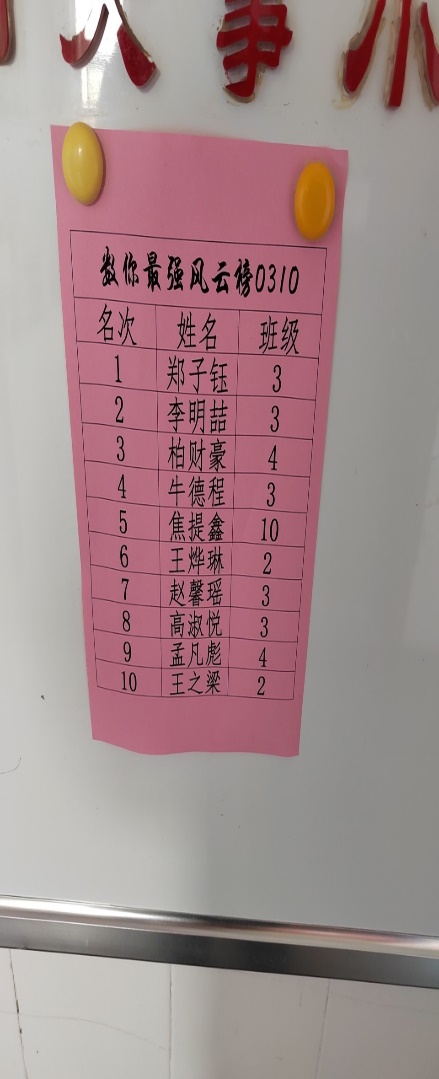 数你最强风云榜0310
名次 姓名 班级
1 郑子钰 3
2 李明喆 3
3 柏财豪 4
4 牛德程 3
5 焦提鑫 10
6 王烨琳 2
7 赵馨瑶 3
8 高淑悦 3
9 孟凡彪 4
10 王之梁 2